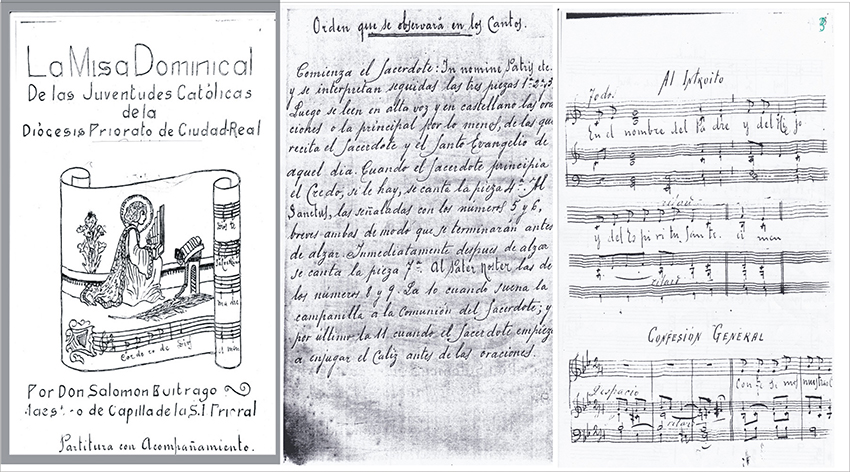 La Misa Dominical
De las Juventudes Católicas
de la
Diócesis Priorato de Ciudad-Real
Cordero de Dios
Por Don Salomon Buitrago
Maestro de Capilla de la S.I. Prioral
Partitura con Acompañamiento.
Orden que se observará en los Cantos.
Comienza el Sacerdote: In nomine Patris etc.
y se interpretan seguidas las tres piezas 1ª 2ª y 3
Luego se leen en alta voz y en castellano las ora
ciones o la principal por lo menos, de las que
recita el Sacerdote y el Santo Evangelio de
aquel dia. Cuando el Sacerdote principia
el Credo, si le hay, se canta la pieza 4ª. Al
Sanctus, las señaladas con los numeros 5 y 6,
breves ambas de modo que se terminarán antes
de alzar. Inmediatamente despues de alzar
se canta la pieza 7ª. Al Pater Noster las de
los numeros 8 y 9. La 10 cuando suena la
campanilla a la Comunión del Sacerdote; y
por ultimo la 11 cuando el Sacerdote empieza
a enjugar el Caliz antes de las oraciones.
3
Al Introito
Todo.
En el nombre del Pa dre y del Hi jo
y del Es pi ri tu San to. a men
Confesión General
Despacio
Con fe se mos nuestras